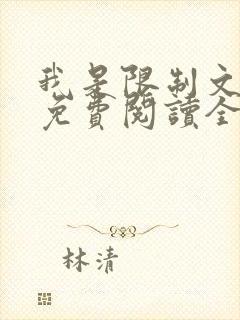 我是限制文
免費閱讀全
林清